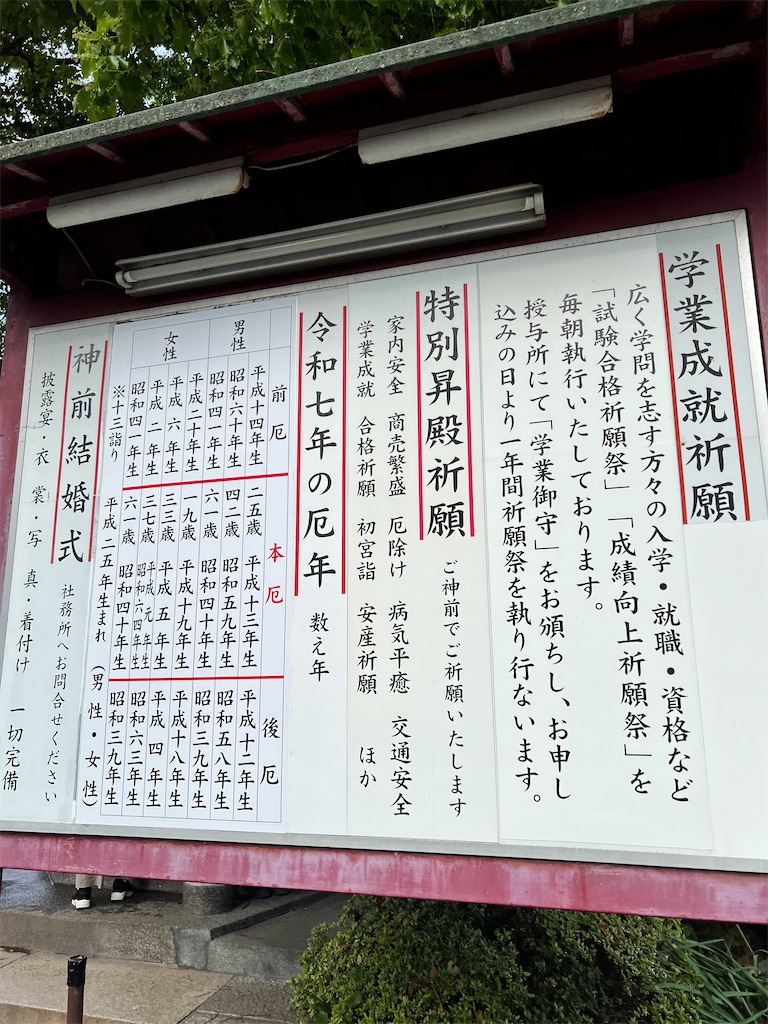 学業成就祈願
広く学問を志す方々の入学・就職・資格など
「試験合格祈願祭」「成績向上祈願祭」を
毎朝執行いたしております。
授与所にて「学業御守」をお頒ちし、お申し
込みの日より一年間祈願祭を執り行ないます。
特別昇殿祈願 ご神前でご祈願いたします
家内安全 商売繁盛 厄除け 病気平癒 交通安全
学業成就 合格祈願 初宮詣 安産祈願 ほか
令和七年の厄年 数え年
前厄 本厄 後厄
男性
平成十四年生 二五歳 平成十三年生 平成十二年生
昭和六十年生 四二歳 昭和五九年生 昭和五八年生
昭和四一年生 六一歳 昭和四十年生 昭和三九年生
女性
平成二十年生 一九歳 平成十九年生 平成十八年生
平成六年生 三三歳 平成五年生 平成四年生
平成二年生 三七歳 平成元年生 昭和六四年生 昭和六三年生
昭和四一年生 六一歳 昭和四十年生 昭和三九年生
※十三詣り 平成二五年生まれ (男性・女性)
神前結婚式 社務所へお問合せください
披露宴・衣裳・写真・着付け 一切完備